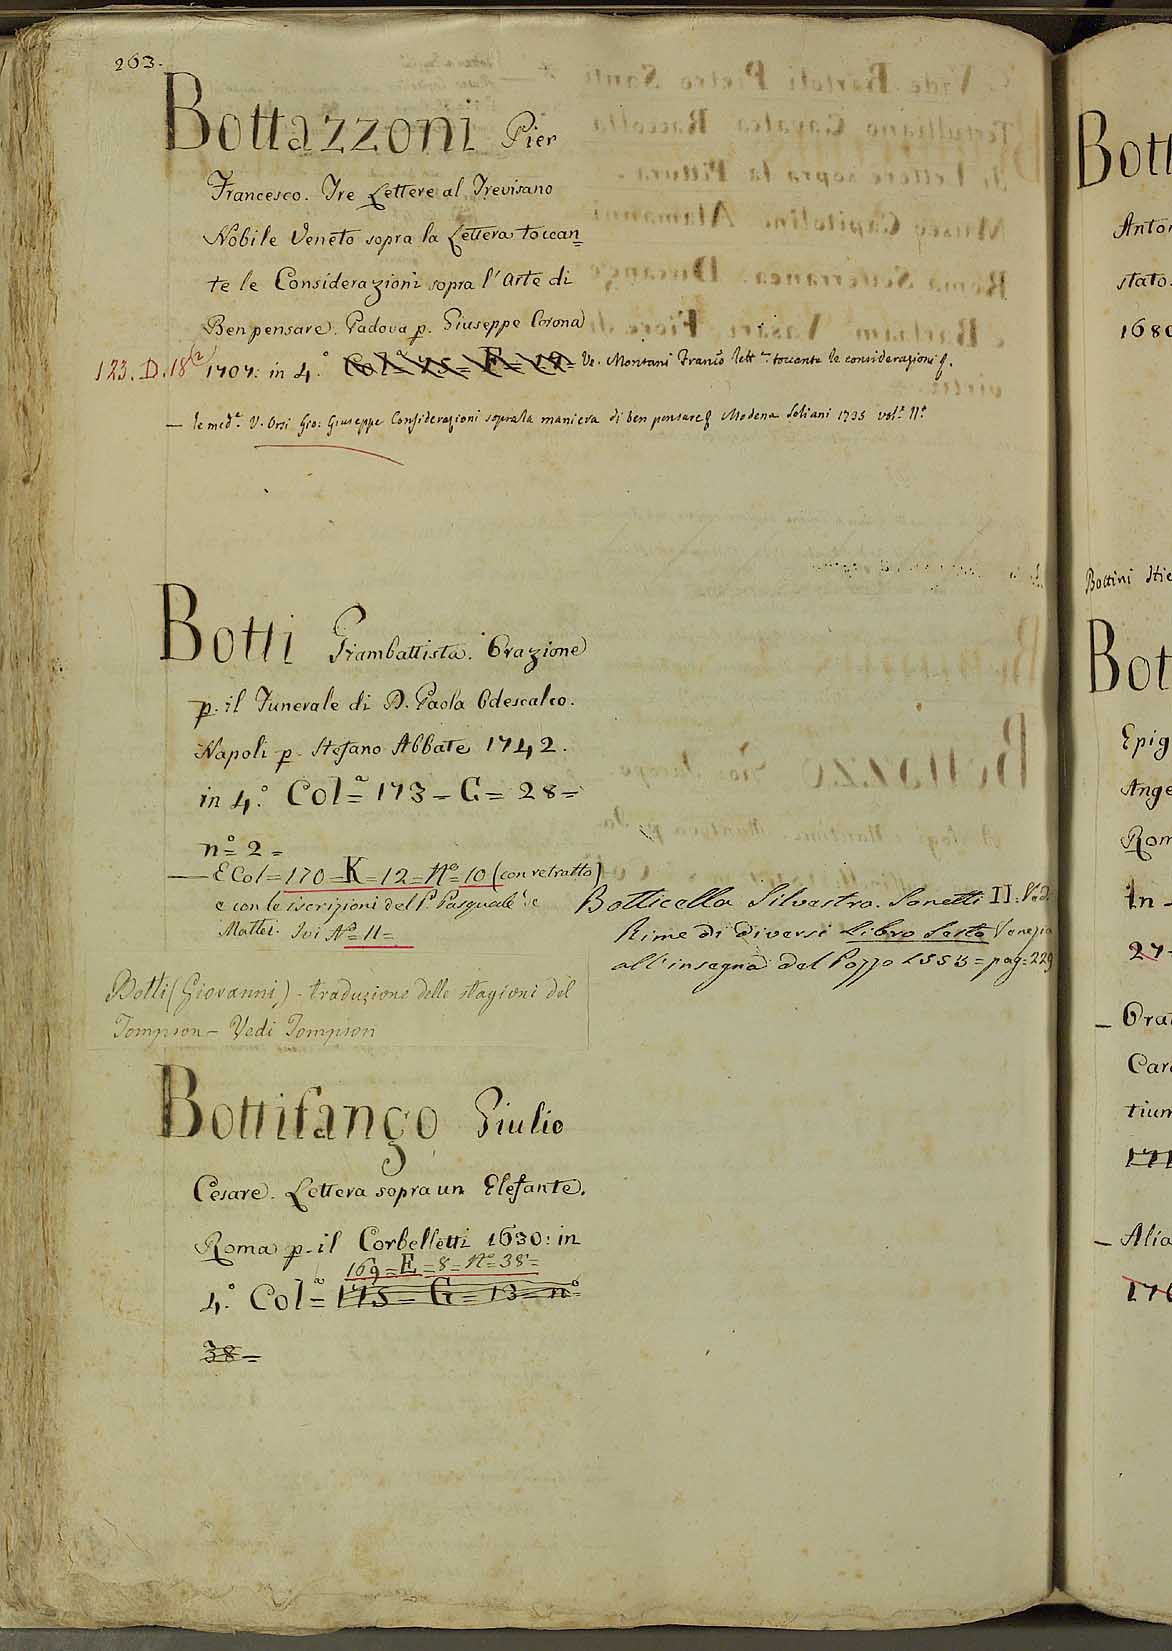 263.
Bottazzoni Pier
Francesco. Tre Lettere al Trevisano
Nobile Veneto sopra la Lettera toccan=
te le Considerazioni sopra l'Arte di
Ben pensare. Padova p. Giuseppe Corona
123. D. 18 1707: in 4.° Col.ª 75 = F = 19 = Ve. Montani Franc.º lett.ª toccante le considerazioni
— le med.e V. Orsi Gio: Giuseppe Considerazioni sopra la maniera di ben pensare Modena Soliani 1735 vol.e II.°
Botti Giambattista. Orazione
p. il Funerale di D. Paola Odescalco.
Napoli p. Stefano Abbate 1742.
in 4.° Col.ª = 173 = G = 28 =
n.° = 2 =
— E Col = 170 = K = 12 = N.° = 10 (con retratto)
e con le iscrizioni del P. Pasquale
Mattei. Ivi N.° = 11 =
Botticella Silvestro. Sonetti II. Vedi
Rime di diversi Libro Sesto Venezia
all'insegna del Pozzo 1553 = pag = 229
Botti (Giovanni) - traduzione delle stagioni del
Tompson - Vedi Tompson
Bottifango Giulio
Cesare. Lettera sopra un Elefante.
Roma p. il Corbelletti 1630: in
169 = E = 8 = N.° = 38 =
4.° Col.ª = 175 = G = 13 = n.° =
38 =
Bott
Anton
stato.
1680
Bottini Hie
Bot
Epig
Ange
Rom
In
27
— Orat
Car
tium
171
— Alia
176